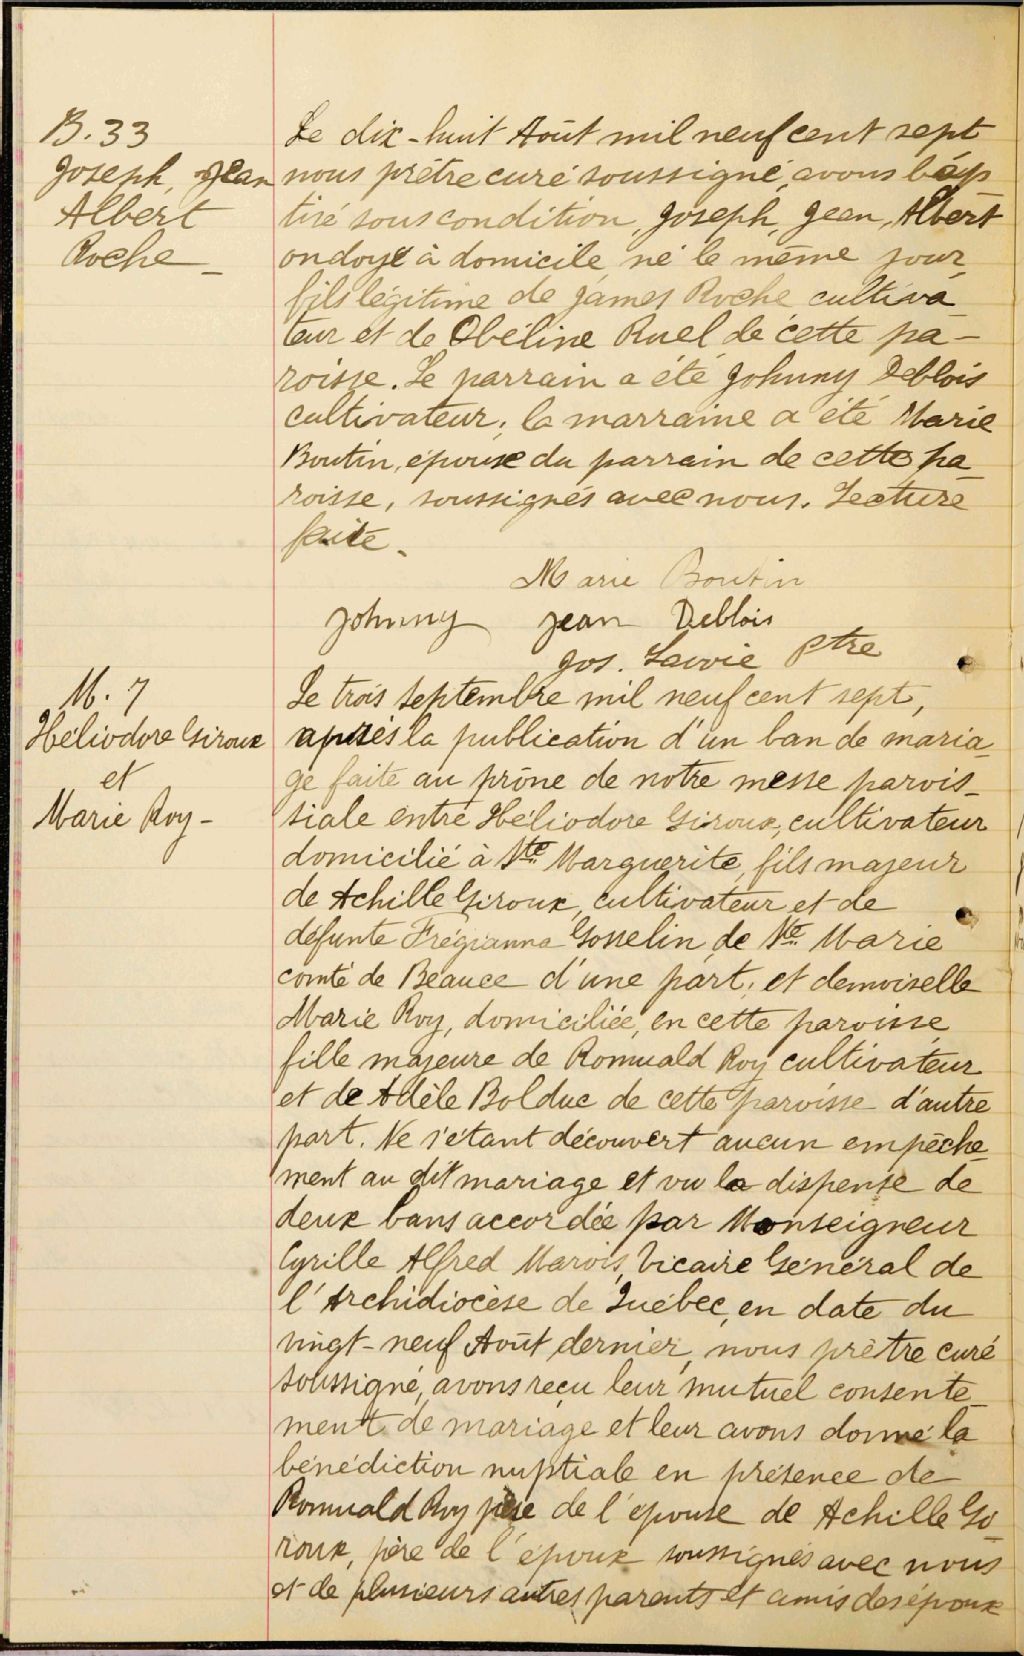 B. 33
Joseph, Jean
Albert
Roche_
Le dix-huit Août mil neuf cent sept
nous prêtre curé soussigné, avons bap_
tisé sous condition, Joseph, Jean, Albert
ondoyé à domicile, né le même jour,
fils légitime de James Roche cultiva_
teur et de Obéline Ruel de cette pa-
roisse. Le parrain a été Johnny Deblois
cultivateur; la marraine a été Marie
Boutin, épouse du parrain de cette pa_
roisse, soussignés avec nous. Lecture
faite_
Marie Boutin
Johnny Jean Deblois
Jos. Lavoie Ptre
M. 7
Héliodore Giroux
et
Marie Roy-
Le trois Septembre mil neuf cent sept,
après la publication d'un ban de maria_
ge faite au prône de notre messe parois_
siale entre Héliodore Giroux, cultivateur
domicilié à Ste Marguerite, fils majeur
de Achille Giroux, cultivateur et de
défunte Frégianna Gosselin, de Ste Marie
comté de Beauce d'une part; et demoiselle
Marie Roy, domiciliée, en cette paroisse,
fille majeure de Romuald Roy cultivateur
et de Adèle Bolduc de cette paroisse d'autre
part. Ne s'étant découvert aucun empêche_
ment au dit mariage et vu la dispense de
deux bans accordée par Monseigneur
Cyrille Alfred Marois, Vicaire Général de
l'Archidiocèse de Québec, en date du
vingt-neuf Août dernier, nous prêtre curé
soussigné, avons reçu leur mutuel consente_
ment de mariage et leur avons donné la
bénédiction nuptiale en présence de
Romuald Roy père de l'épouse de Achille Gi_
roux, père de l'époux soussignés avec nous
et de plusieurs autres parents et amis des époux